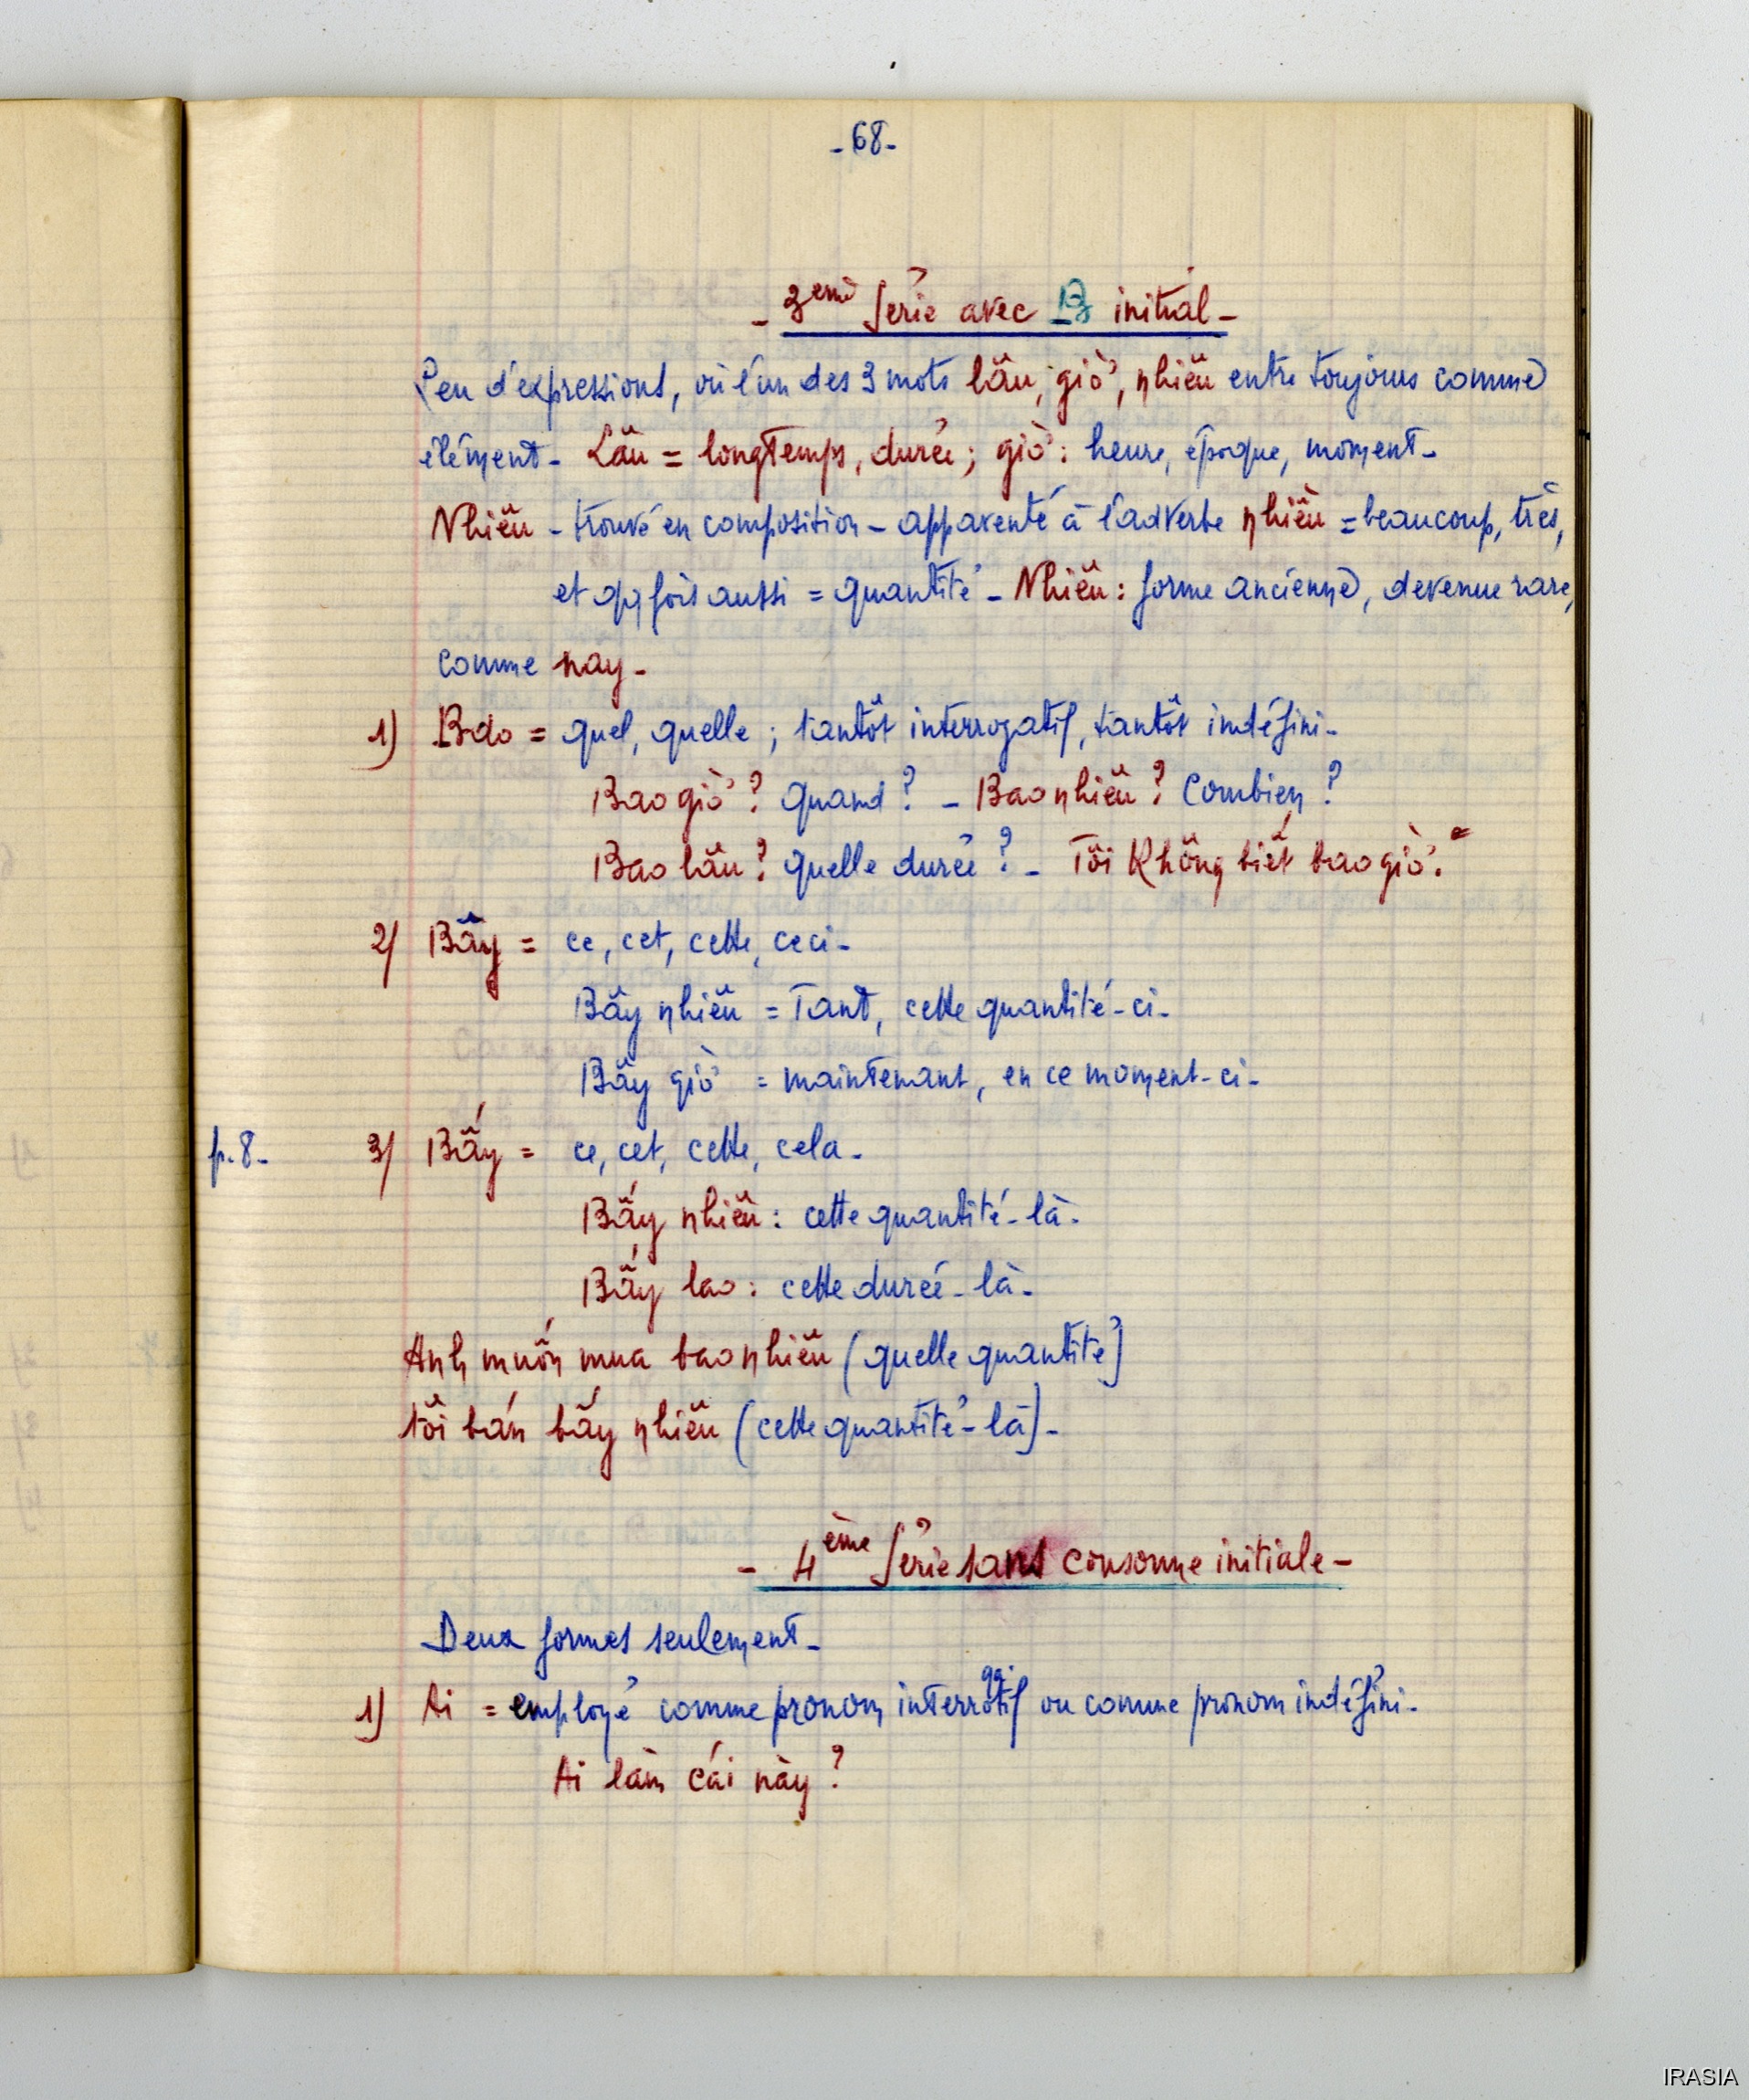 -68-
- 3ème Série avec B initial -
Peu d'expressions, où l'un des 3 mots lâu, giờ, nhiêu entre toujours comme
élément - Lâu = longtemps, durée ; giờ : heure, époque, moment -
Nhiêu - trouvé en composition - apparenté à l'adverbe nhiều = beaucoup, très,
et qqfois aussi = quantité - Nhiêu : forme ancienne, devenue rare,
comme nay -
1) Bao = quel, quelle ; tantôt interrogatif, tantôt indéfini -
Bao giờ ? Quand ? - Bao nhiêu ? Combien ?
Bao lâu ? quelle durée ? - Tôi không biết bao giờ.
2/ Bây = ce, cet, cette, ceci -
Bây nhiêu = Tant, cette quantité-ci -
Bây giờ = maintenant, en ce moment-ci -
p. 8 - 3/ Bấy = ce, cet, cette, cela -
Bấy nhiêu : cette quantité-là -
Bấy lao : cette durée-là -
Anh muốn mua bao nhiêu (quelle quantité)
tôi bán bấy nhiêu (cette quantité-là) -
- 4ème Série sans consonne initiale -
Deux formes seulement -
1) Ai = employé comme pronom interrogatif ou comme pronom indéfini -
Ai làm cái này ?
IRASIA